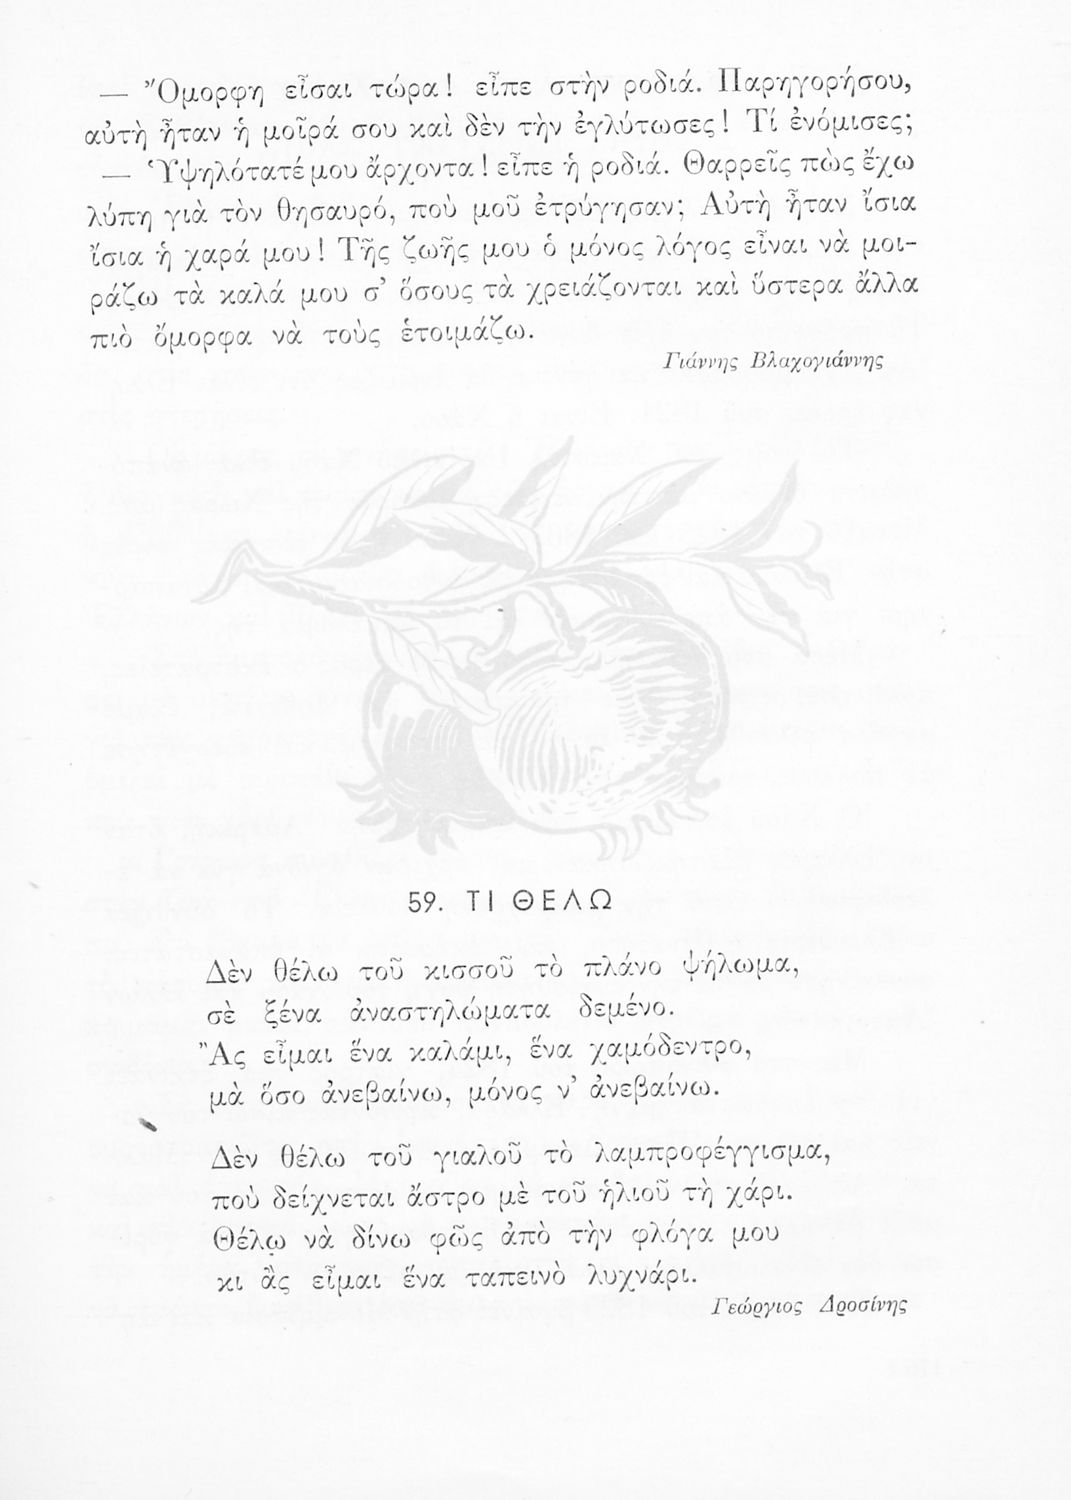 — Ὄμορφη εἶσαι τώρα! εἶπε στὴν ροδιά. Παρηγορήσου,
αὐτὴ ἦταν ἡ μοῖρά σου καὶ δὲν τὴν ἐγλύτωσες! Τί ἐνόμισες;
— Ὑψηλότατέ μου ἄρχοντα! εἶπε ἡ ροδιά. Θαρρεῖς πὼς ἔχω
λύπη γιὰ τὸν θησαυρό, ποὺ μοῦ ἐτρύγησαν; Αὐτὴ ἦταν ἴσια
ἴσια ἡ χαρά μου! Τῆς ζωῆς μου ὁ μόνος λόγος εἶναι νὰ μοι-
ράζω τὰ καλά μου σ’ ὅσους τὰ χρειάζονται καὶ ὕστερα ἄλλα
πιὸ ὄμορφα νὰ τοὺς ἑτοιμάζω.
Γιάννης Βλαχογιάννης
59. ΤΙ ΘΕΛΩ
Δὲν θέλω τοῦ κισσοῦ τὸ πλάνο ψήλωμα,
σὲ ξένα ἀναστηλώματα δεμένο.
Ἂς εἶμαι ἕνα καλάμι, ἕνα χαμόδεντρο,
μὰ ὅσο ἀνεβαίνω, μόνος ν’ ἀνεβαίνω.
Δὲν θέλω τοῦ γιαλοῦ τὸ λαμπροφέγγισμα,
ποὺ δείχνεται ἄστρο μὲ τοῦ ἡλιοῦ τὴ χάρι.
Θέλω νὰ δίνω φῶς ἀπὸ τὴν φλόγα μου
κι ἂς εἶμαι ἕνα ταπεινὸ λυχνάρι.
Γεώργιος Δροσίνης